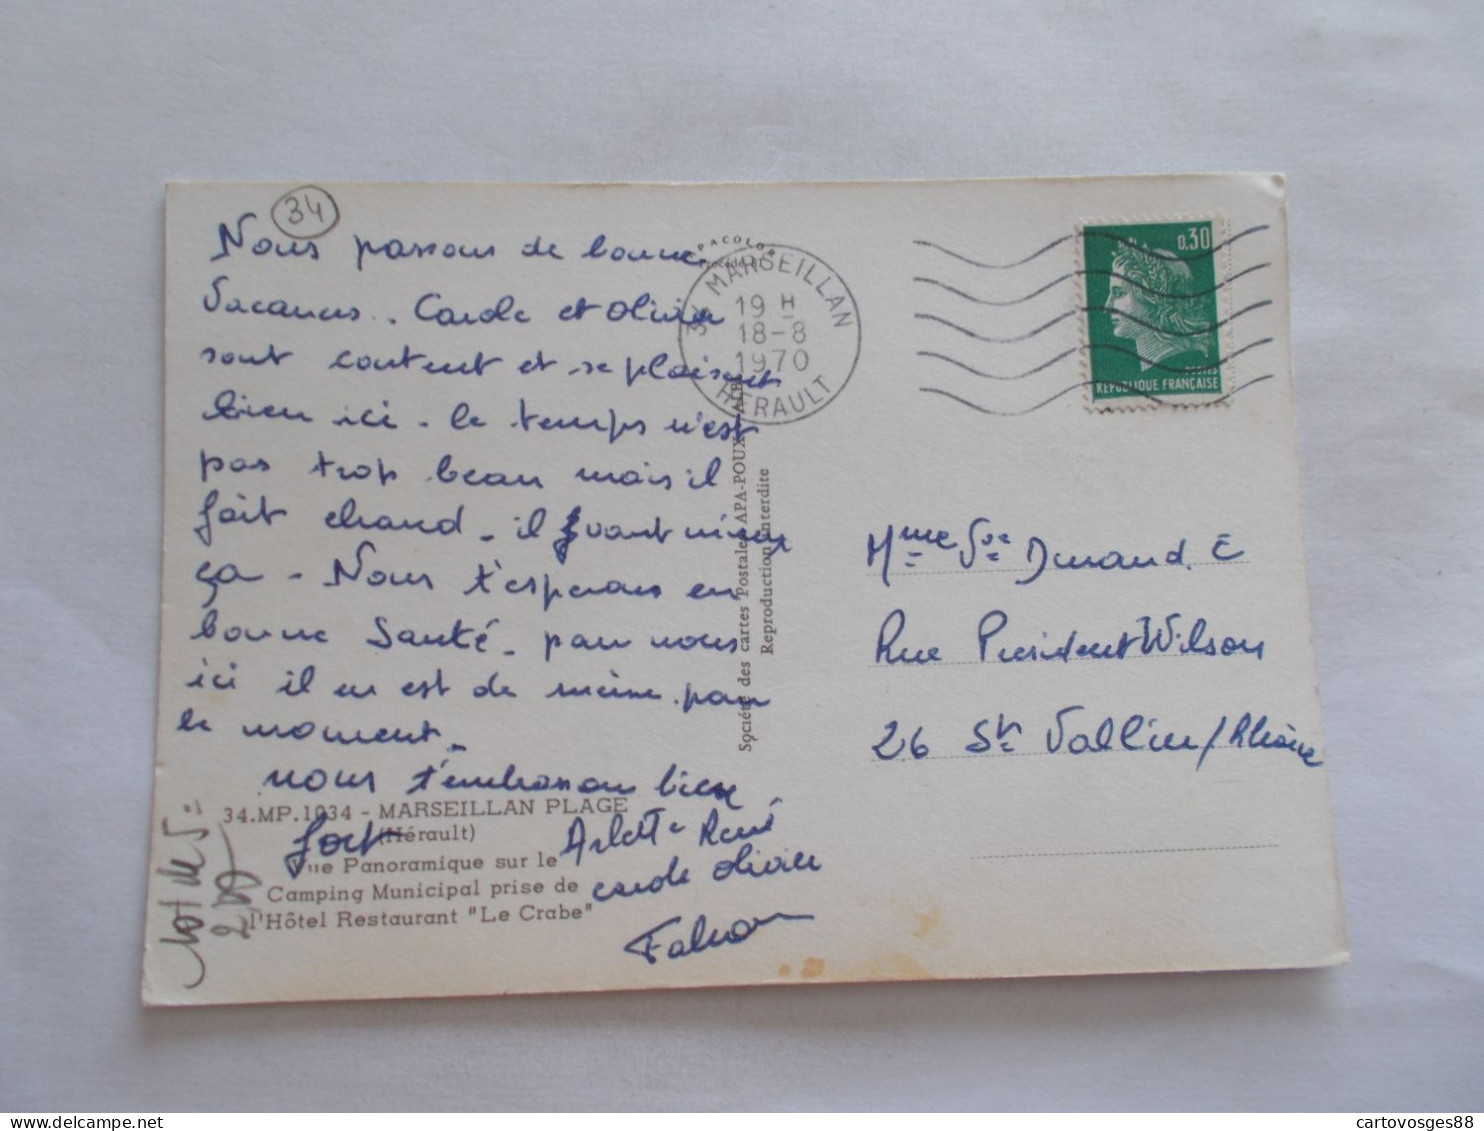 34
Nous passons de bonne
Vacances. Carole et Olivier
sont content et se plaisent
bien ici. le temps n'est
pas trop beau mais il
fait chaud. il vaut mieux
ça. Nous t'esperons en
bonne Santé. pour nous
ici il en est de même. pour
le moment.
nous t'embrassons bien
fort
Arlette René
Carole Olivier
34.MP.1034 - MARSEILLAN PLAGE
(Hérault)
Vue Panoramique sur le
Camping Municipal prise de
l'Hôtel Restaurant "Le Crabe"
lot de 5:
APACOLOR
MARSEILLAN
19 H
18-8
1970
HERAULT
Société des cartes Postales APA-POUX - ALBI
Reproduction interdite
0,30
POSTES
RÉPUBLIQUE FRANÇAISE
Mme Vve Durand. E
Rue President Wilson
26 St Vallier/Rhône
cartovosges88